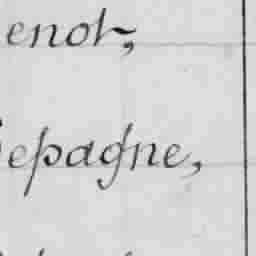 enot,
epagne,